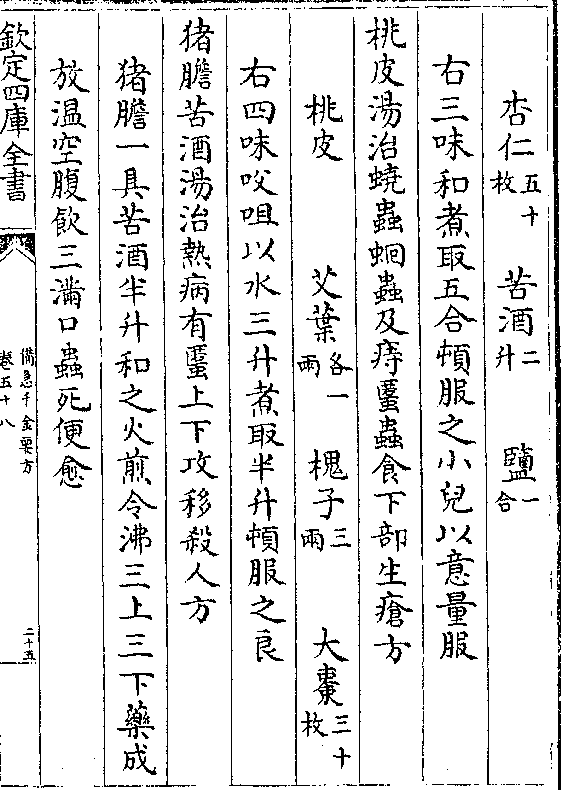 杏仁五十枚 苦酒二升 鹽一合
右三味和煮取五合頓服之小兒以意量服
桃皮湯治蟯蟲蛔蟲及痔䘌蟲食下部生瘡方
桃皮 艾葉各一兩 槐子三兩 大棗三十枚
右四味㕮咀以水三升煮取半升頓服之良
猪膽苦酒湯治熱病有䘌上下攻移殺人方
猪膽一具苦酒半升和之火煎令沸三上三下藥成
放温空腹飲三滿口蟲死便愈
欽定四庫全書
備急千金要方
卷五十八
二十五